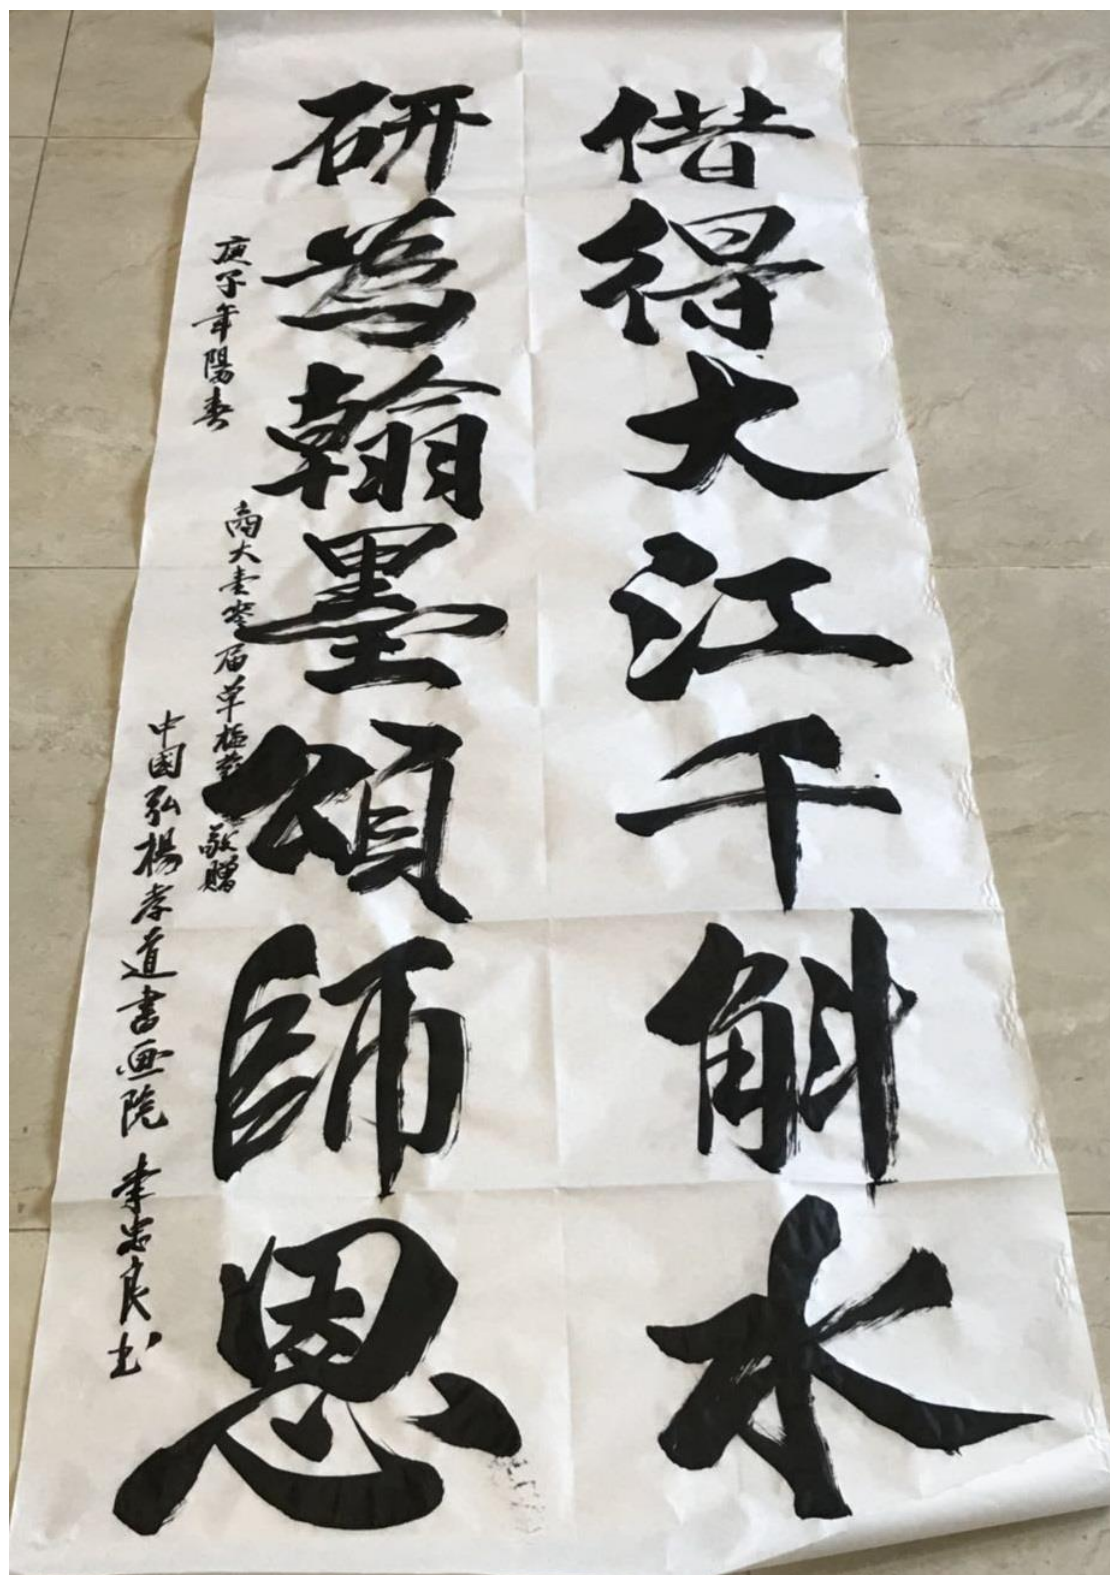 借得大江千斛水
研為翰墨頌師恩
庚子年陽春
商大書 届草 敬贈
中國弘楊孝道書画院 李忠良书